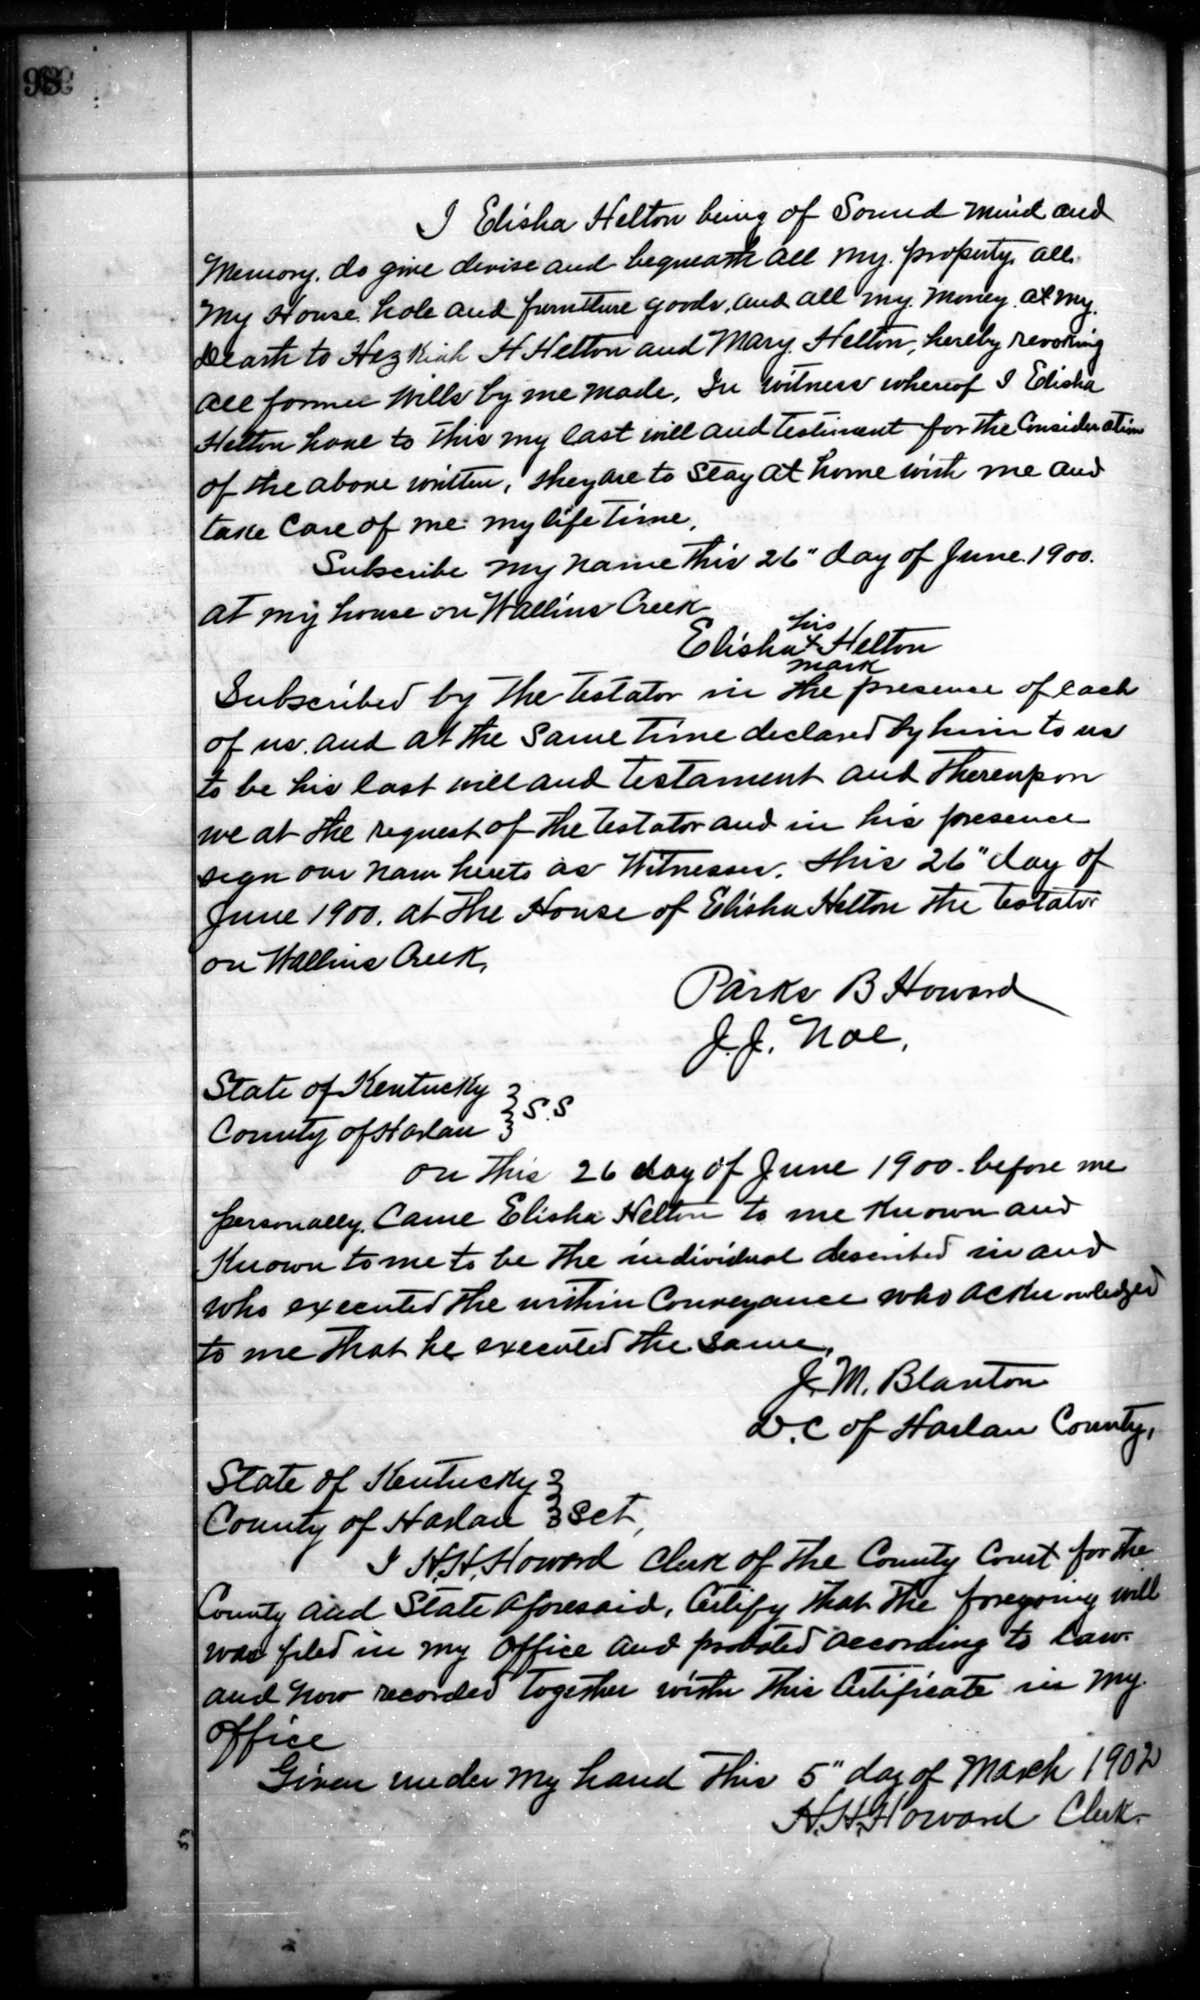 98
I Elisha Helton being of Sound mind and
Memory, do give devise and bequeath all my property, all
my House hole and furniture goods, and all my money at my
Death to Hezkiah H Helton and Mary Helton, hereby revoking
all former Wills by me made. In witness whereof I Elisha
Helton have to this my last will and testiment for the Consideration
of the above written, they are to Stay at home with me and
take Care of me my life time.
Subscribe my name this 26" day of June 1900.
at my house on Wallins Creek
his
Elisha x Helton
mark
Subscribed by the testator in the presence of each
of us and at the Same time declared by him to us
to be his last will and testament and thereupon
we at the request of the testator and in his presence
sign our nam hereto as Witnesses. this 26" day of
June 1900. at the House of Elisha Helton the testator
on Wallins Creek.
Parks B Howard
J. J. Noe.
State of Kentucky
County of Harlan } S.S
on this 26 day of June 1900. before me
personally Came Elisha Helton to me Known and
Known to me to be the individual described in and
who executed the within Conveyance who acknowledged
to me that he executed the Same.
J. M. Blanton
D. C of Harlan County,
State of Kentucky
County of Harlan } Sct,
I H. H. Howard Clerk of the County Court for the
County and State Aforesaid, Certify that the foregoing will
was filed in my Office and probated according to law.
and now recorded together with this Certificate in my
office
Given under my hand this 5" day of March 1902
H. H. Howard Clerk.